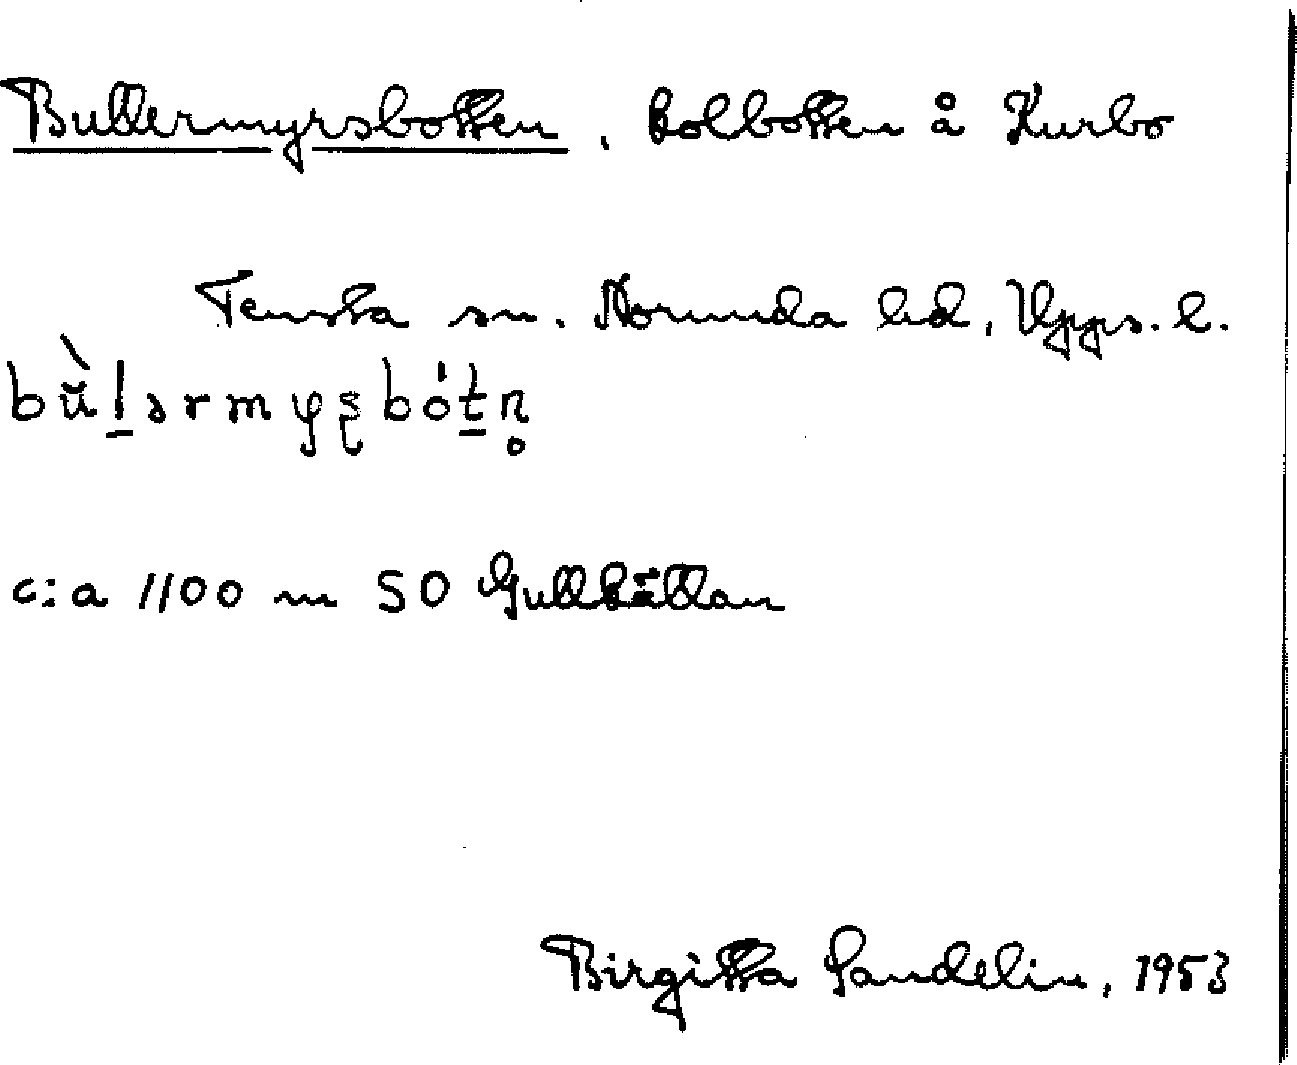 Bullermyrsbotten, kolbotten å Kurbo
Tensta sn. Norunda hd, Upps. l.
bù̆l̲ərmyʂbót̲n̥
c:a 1100 m SO Gullkällan
Birgitta Sandelin, 1953